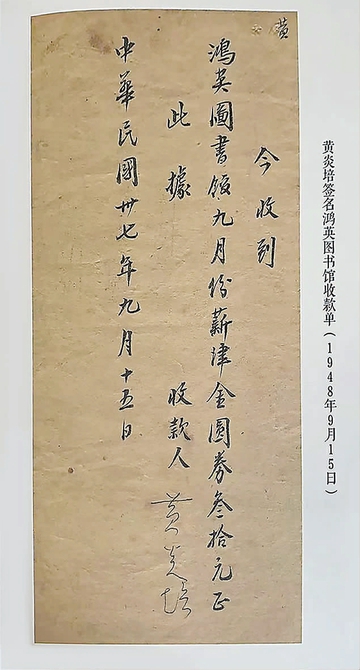 黄
今收到
鸿英圖書館九月份薪津金圓券叁拾元正
此據
收款人 黄炎培
中華民國卅七年九月十五日
黄炎培签名鸿英图书馆收款单(1948年9月15日)